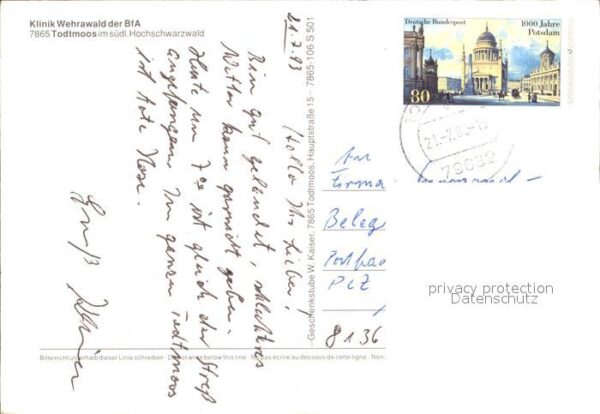 Klinik Wehrawald der BfA
7865 Todtmoos im südl. Hochschwarzwald
21.7.93
Hallo Ihr Lieben!
Bin gut gelandet, schlechteres
Wetter kann garnicht geben.
Heute um 7°° ist gleich der Streß
angefangen. Im ganzen Todtmoos
ist tote Hose.
Gruß
Geschenkstube W. Kaiser, 7865 Todtmoos, Hauptstraße 15 7865·106 S 501
Deutsche Bundespost
1000 Jahre
Potsdam
80
21.-7.93-
79682
An
Firma
Beleg
Postfac
PLZ
8136
privacy protection
Datenschutz
Bitte nicht unterhalb dieser Linie schreiben · Do not write below this line · Pas écrire au dessous de cette ligne · Non